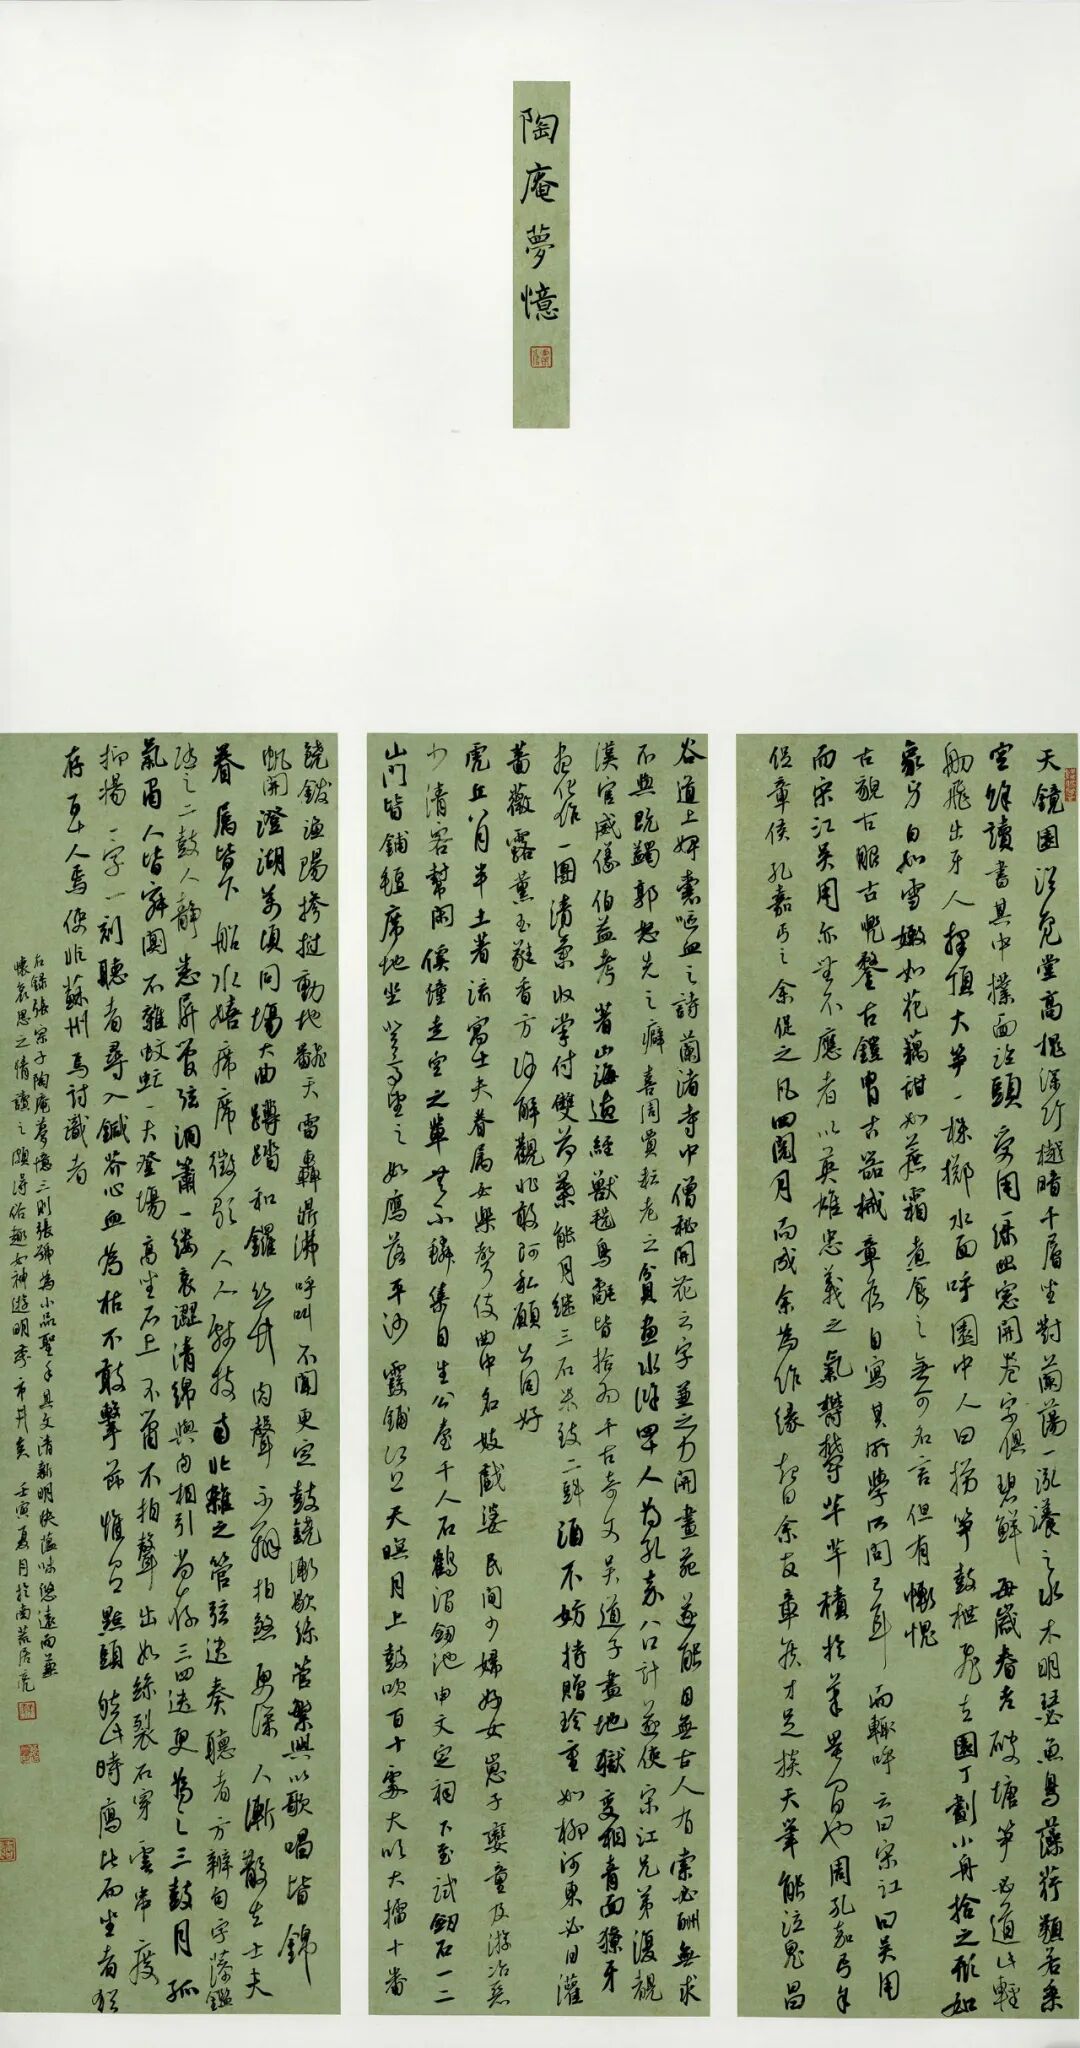 陶庵夢憶
天鏡園浴鳧堂高槐深竹樾暗千層坐對蘭蕩一泓漾之水木明瑟魚鳥藻荇類若乘
空余讀書其中撲面臨頭受用一綠幽窗開卷字俱碧鮮每歲春老破塘筍必道此輕
舠飛出牙人擇頂大筍一株擲水面呼園中人曰撈筍鼓枻飛去園丁劃小舟拾之形如
象牙白如雪嫩如花藕甜如蔗霜煮食之無可名言但有慚愧
古貌古服古兜鍪古鎧冑古器械章侯自寫其所學所問已耳而輒呼之曰宋江曰吳用
而宋江吳用亦無不應者以英雄忠義之氣鬱鬱芊芊積於筆墨間也周孔嘉丐余
促章侯孔嘉丐之余促之凡四閱月而成余為作緣起曰余友章侯才足掞天筆能泣鬼昌
谷道上婢囊嘔血之詩蘭渚寺中僧秘開花之字兼之力開畫苑遂能目無古人有索必酬無求
不與既蠲郭恕先之癖喜周賈耘老之貧畫水滸四十人為孔嘉八口計遂使宋江兄弟復覩
漢官威儀伯益考著山海遺經獸毨鳥氄皆拾為千古奇文吳道子畫地獄變相青面獠牙
盡化作一團清氣收掌付雙荷葉能月繼三石米致二斗酒不妨持贈珍重如柳河東必日灌
薔薇露薰玉蕤香方許解觀非敢阿私願公同好
虎丘八月半土著流寓士夫眷屬女樂聲伎曲中名妓戲婆民間少婦好女崽子孌童及游冶惡
少清客幫閑傒僮走空之輩無不鱗集自生公臺千人石鶴澗劍池申文定祠下至試劍石一二
山門皆鋪氈席地坐登高望之如雁落平沙霞鋪江上天暝月上鼓吹百十處大吹大擂十番
鐃鈸漁陽摻撾動地翻天雷轟鼎沸呼叫不聞更定鼓鐃漸歇絲管繁興以歌唱皆錦
帆開澄湖萬頃同場大曲蹲踏和鑼絲竹肉聲不辨拍煞更深人漸散去士夫
眷屬皆下船水嬉席席徵歌人人獻技南北雜之管弦迭奏聽者方辨句字藻鑑
隨之二鼓人靜悉屏管弦洞簫一縷哀澀清綿與肉相引尚存三四迭更為之三鼓月孤
氣肅人皆寂闃不雜蚊虻一夫登場高坐石上不簫不拍聲出如絲裂石穿雲串度
抑揚一字一刻聽者尋入鍼芥心血為枯不敢擊節惟有點頭然此時雁比而坐者猶
存百十人焉使非蘇州焉討識者
右錄張宗子陶庵夢憶三則張號為小品聖手其文清新明快蘊味悠遠而兼
懷哀思之情讀之頗得俗趣如神遊明季市井矣壬寅夏月於南